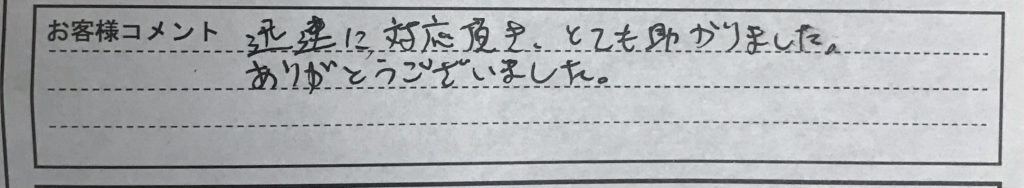 お客様コメント 迅速に、対応頂き、とても助かりました。
ありがとうございました。